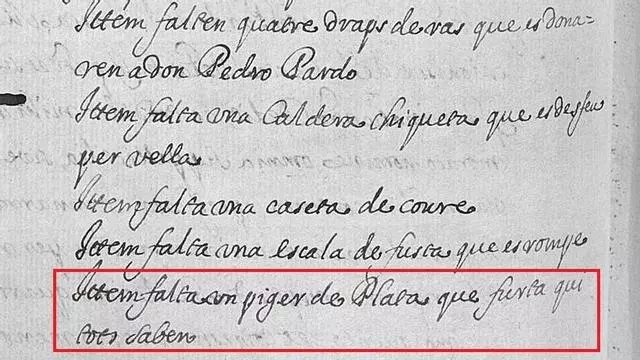 Ittem falten quatre draps de ras que es dona-
ren a don Pedro Pardo
Ittem falta una Caldera chiqueta que es desfeu
per vella
Ittem falta una caseta de coure
Ittem falta una escala de fusta que es rompe
Ittem falta un piger de Plata que furta qui
tots saben